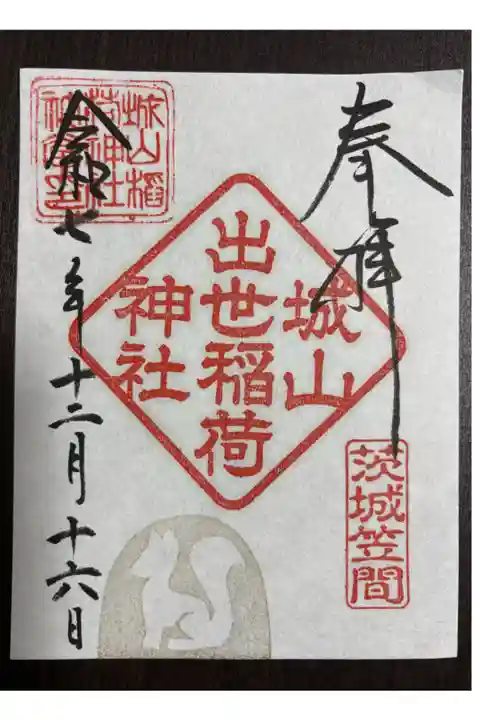 奉拝
城山
出世稲荷
神社
茨城笠間
城山稲
荷神社
令和七年十二月十六日